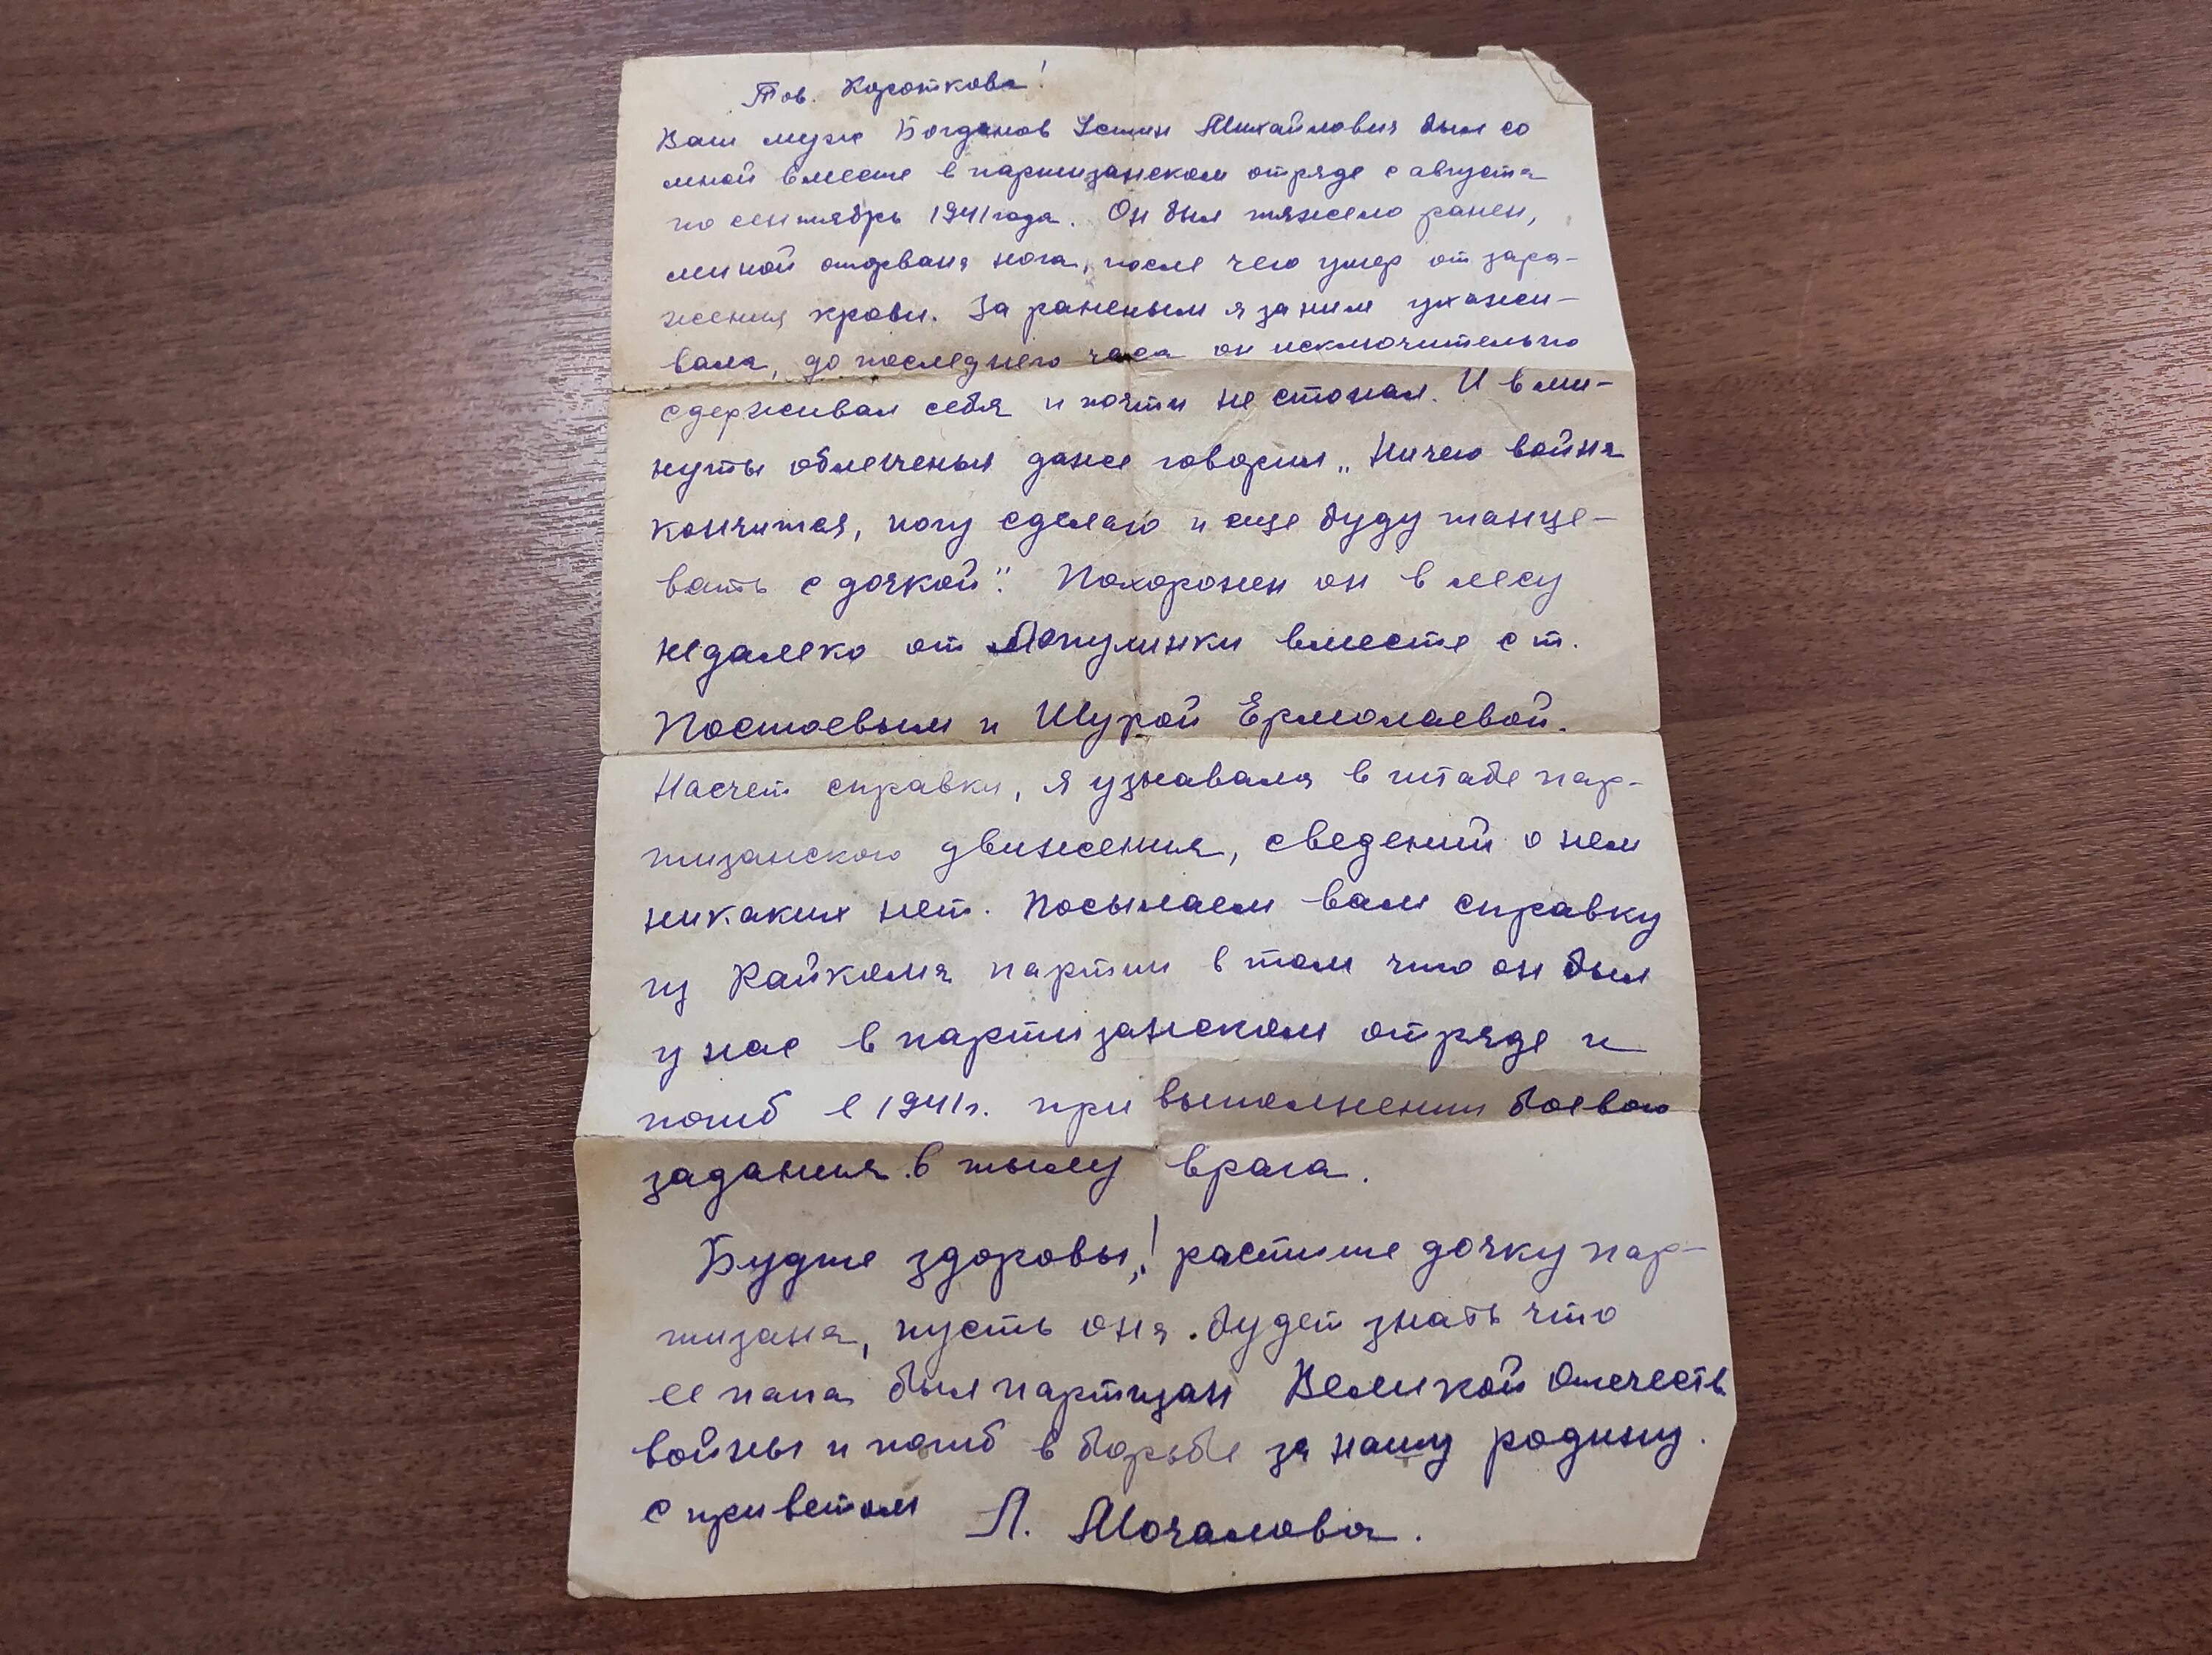 Тов. Короткова!
Ваш муж Богданов Устин Михайлович был со
мной вместе в партизанском отряде с августа
по сентябрь 1941 года. Он был тяжело ранен,
миной оторвана нога, после чего умер от зара-
жения крови. За раненым я за ним ухажи-
вала, до последнего часа он исключительно
сдерживал себя и почти не стонал. И в ми-
нуты облегченья даже говорил „Ничего война
кончится, ногу сделаю и еще буду танце-
вать с дочкой". Похоронен он в лесу
недалеко от Лопулинки вместе с т.
Постоевым и Шурой Ермолаевой.
Насчет справки, я узнавала в штабе пар-
тизанского движения, сведений о нем
никаких нет. Посылаем вам справку
из Райкома партии в том что он был
у нас в партизанском отряде и
погиб в 1941г. при выполнении боевого
задания в тылу врага.
Будьте здоровы,! растите дочку пар-
тизана, пусть она будет знать что
ее папа был партизан Великой Отечеств
войны и погиб в борьбе за нашу родину.
с приветом Л. Мочалова.